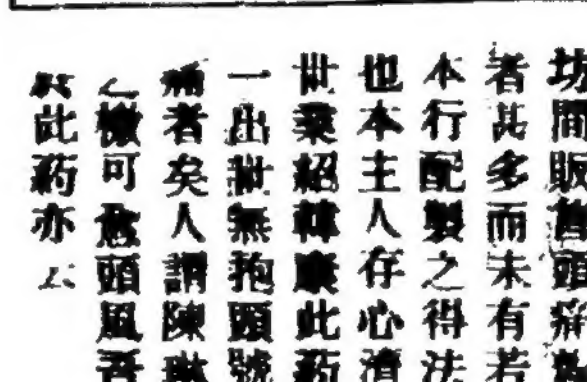 坊間販舊頭痛
者甚多而未有若
本行配製之得法
也本主人存心濟
世業紹韓康此药
一出世無抱頭號
痛者矣人謂陳琳
之檄可愈頭風吾
於此药亦云